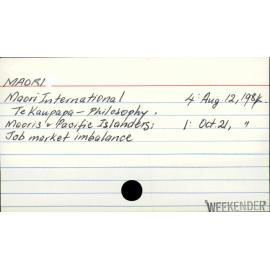 MAORI
Maori International 4: Aug. 12, 1984.
Te Kaupapa - Philosophy.
Maoris & Pacific Islanders; 1: Oct. 21, "
Job market imbalance
WEEKENDER